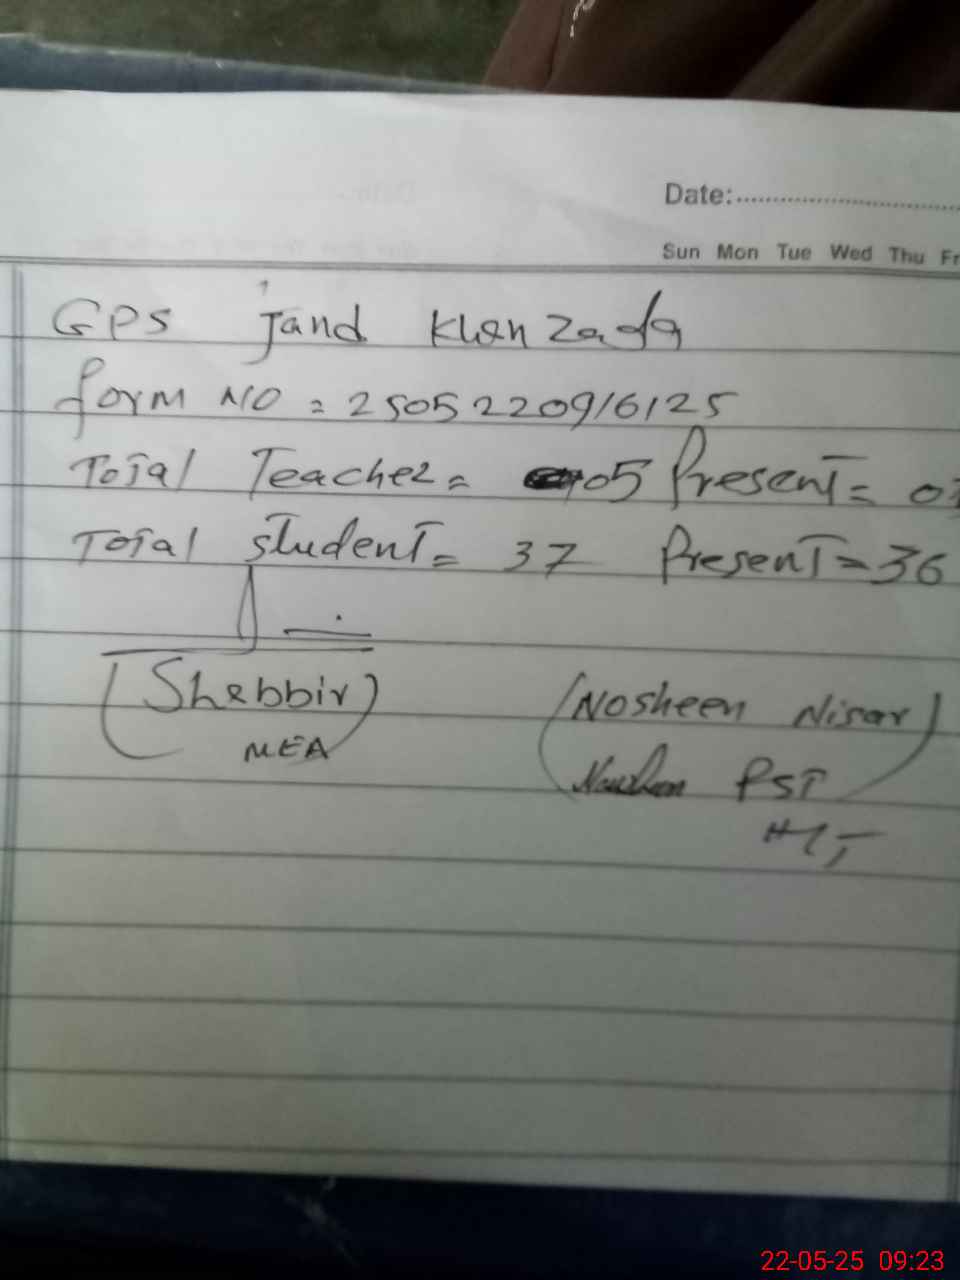 Date:
Sun Mon Tue Wed Thu Fr
GPS Jand Khan Zada
form NO = 2505220916125
Total Teacher = 05 Present =
Total student = 37 Present = 36
(Shabbir)
MEA
(Nosheen Nisar)
PST
HT
22-05-25 09:23